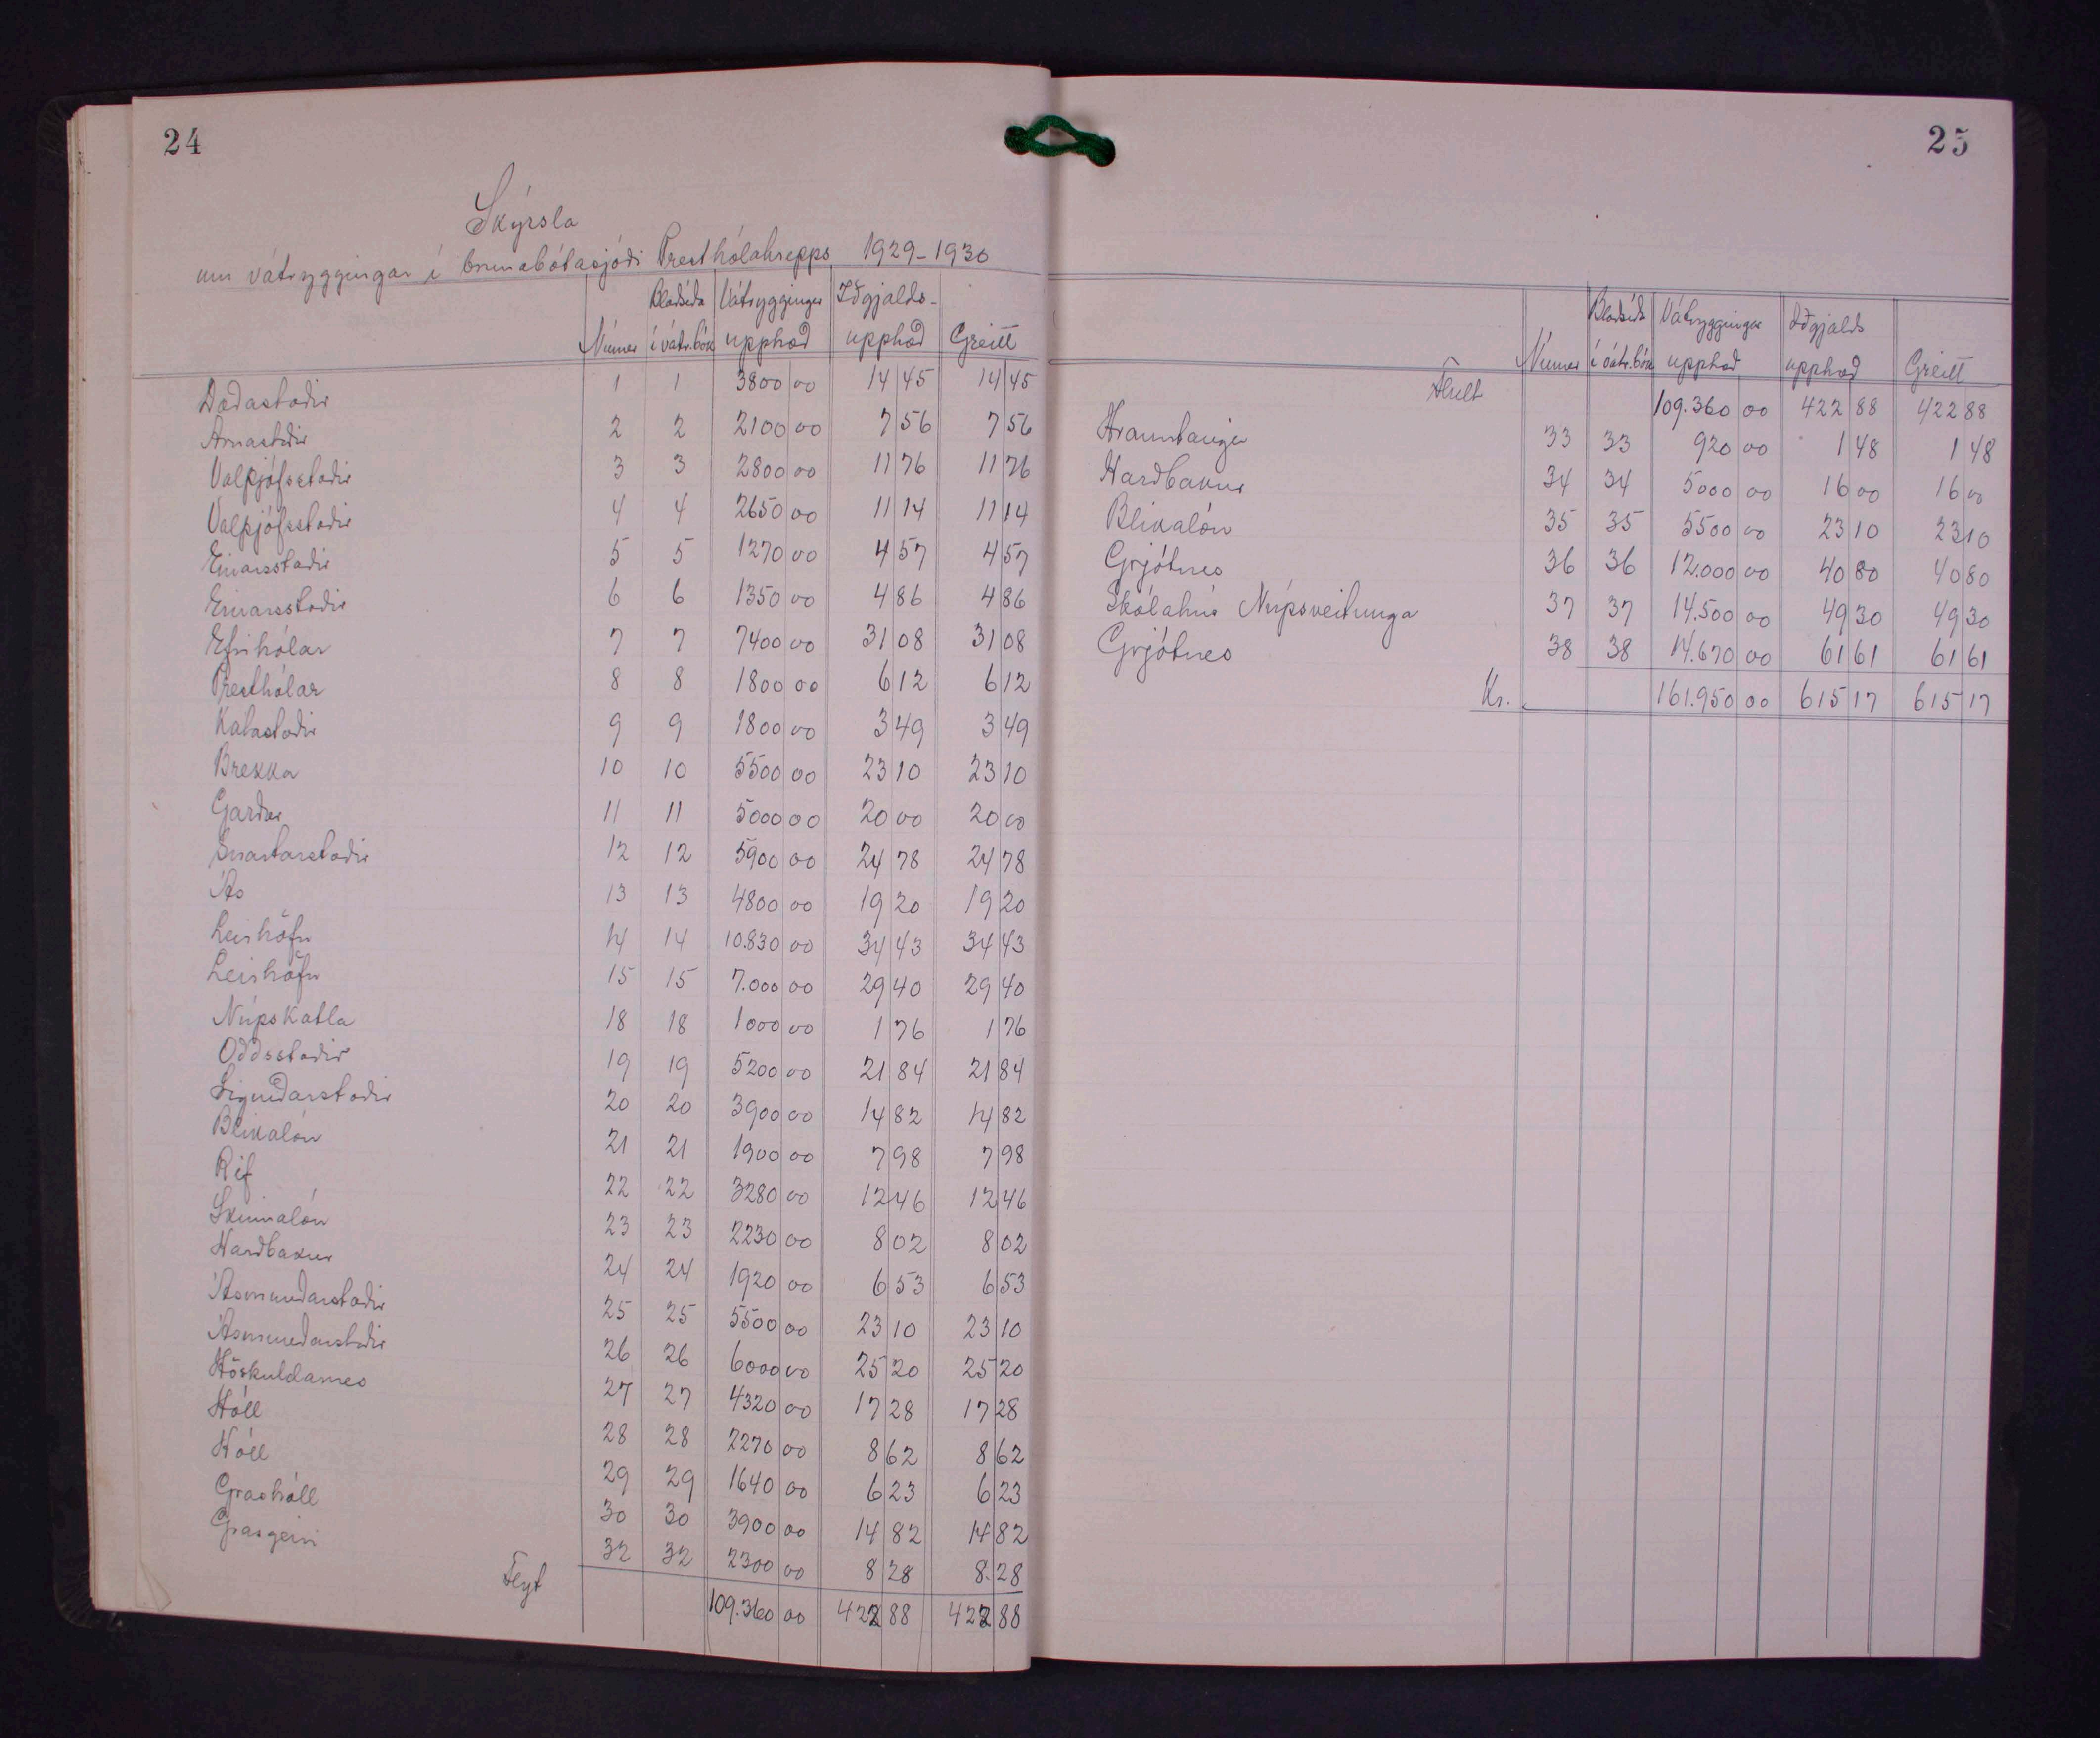 24
Skýrsla
um vátryggingar í brunabótasjóði Presthólahrepps 1929-1930
Númer Blaðsíða í vátr.bók Vátryggingar upphæð Iðgjalds- upphæð Greitt
Daðastaðir 1 1 3800 00 14 45 14 45
Arnastaðir 2 2 2100 00 7 56 7 56
Valþjófsstaðir 3 3 2800 00 11 76 11 76
Valþjófsstaðir 4 4 2650 00 11 14 11 14
Einarsstaðir 5 5 1270 00 4 57 4 57
Einarsstaðir 6 6 1350 00 4 86 4 86
Efrihólar 7 7 7400 00 31 08 31 08
Presthólar 8 8 1800 00 6 12 6 12
Katastaðir 9 9 1800 00 3 49 3 49
Brekka 10 10 5500 00 23 10 23 10
Garður 11 11 5000 00 20 00 20 00
Snartarstaðir 12 12 5900 00 24 78 24 78
Ás 13 13 4800 00 19 20 19 20
Leirhöfn 14 14 10.830 00 34 43 34 43
Leirhöfn 15 15 7.000 00 29 40 29 40
Núpskatla 18 18 1000 00 1 76 1 76
Oddsstaðir 19 19 5200 00 21 84 21 84
Sigurðarstaðir 20 20 3900 00 14 82 14 82
Blikalón 21 21 1900 00 7 98 7 98
Rif 22 22 3280 00 12 46 12 46
Skinnalón 23 23 2230 00 8 02 8 02
Harðbakur 24 24 1920 00 6 53 6 53
Ásmundarstaðir 25 25 5500 00 23 10 23 10
Ásmundarstaðir 26 26 6000 00 25 20 25 20
Höskuldarnes 27 27 4320 00 17 28 17 28
Hóll 28 28 2270 00 8 62 8 62
Hóll 29 29 1640 00 6 23 6 23
Grashóll 30 30 3900 00 14 82 14 82
Grasgeiri 32 32 2300 00 8 28 8.28
Flyt 109.360 00 422 88 422 88
25
Númer Blaðsíða í vátr.bók Vátryggingar upphæð Iðgjalds upphæð Greitt
Flutt 109.360 00 422 88 422 88
Hrauntangi 33 33 920 00 1 48 1 48
Harðbakur 34 34 5000 00 16 00 16 00
Blikalón 35 35 5500 00 23 10 23 10
Grjótnes 36 36 12.000 00 40 80 40 80
Skólahús Núpsveitunga 37 37 14.500 00 49 30 49 30
Grjótnes 38 38 14.670 00 61 61 61 61
Kr. 161.950 00 615 17 615 17